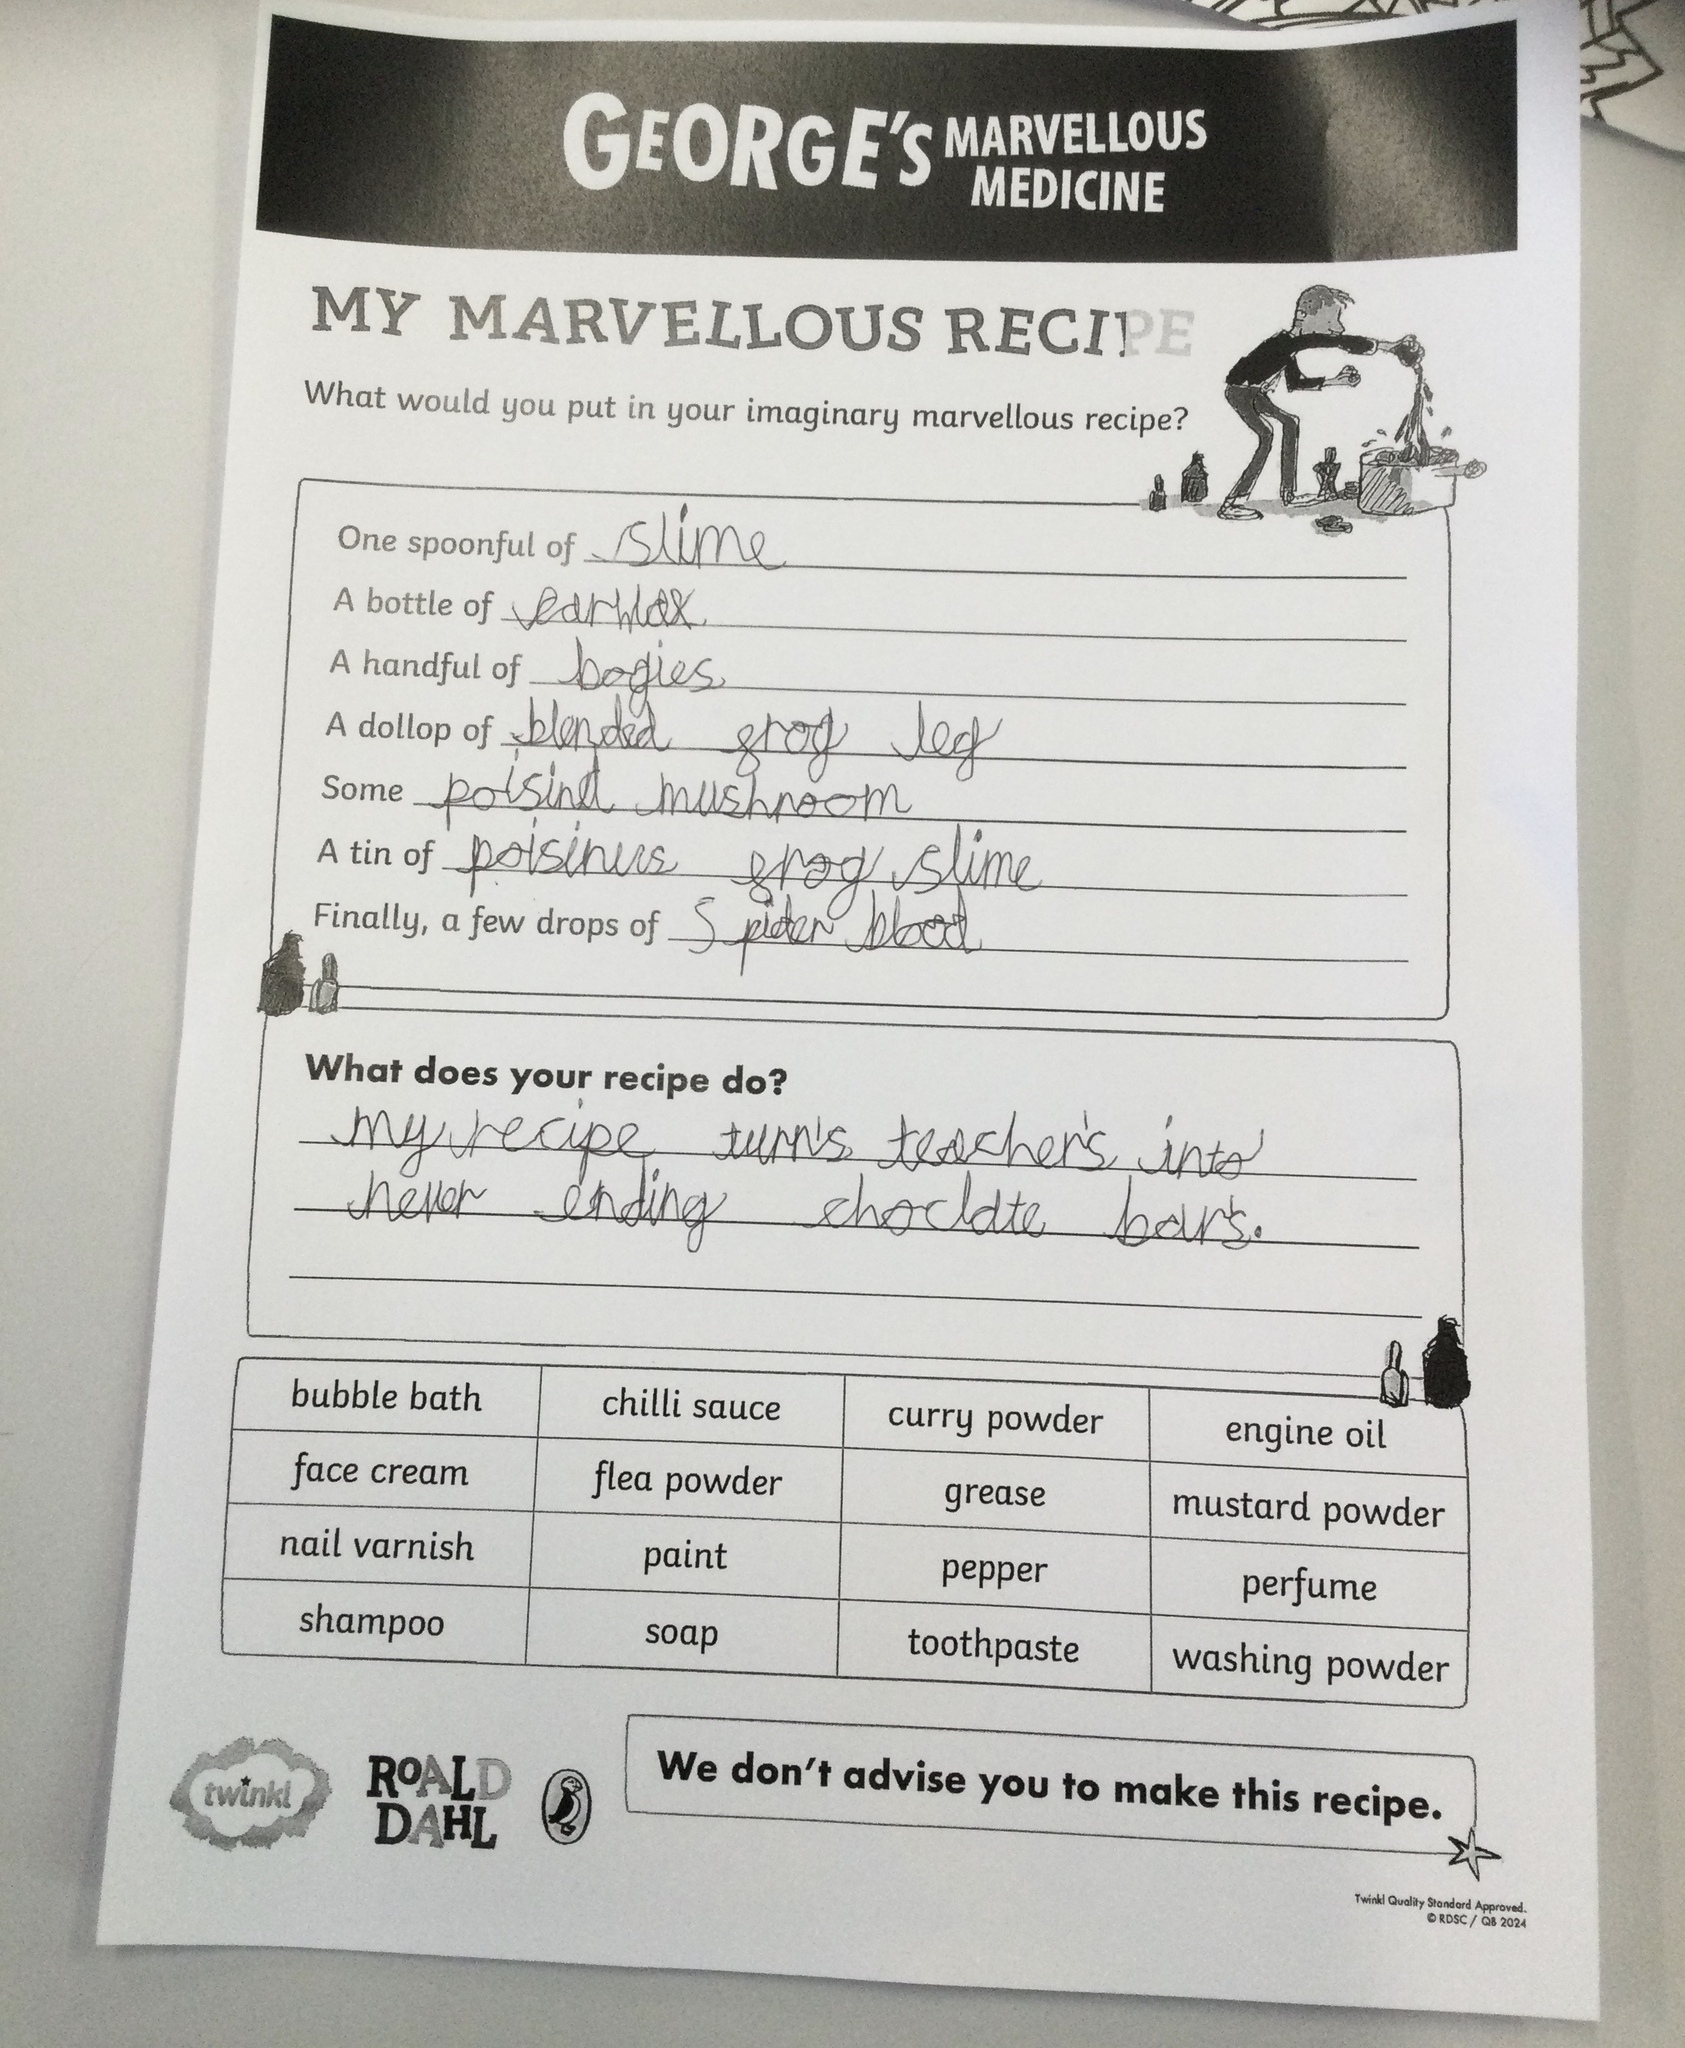 GEORGE'S MARVELLOUS MEDICINE
MY MARVELLOUS RECIPE
What would you put in your imaginary marvellous recipe?
One spoonful of slime
A bottle of earwax
A handful of bogies
A dollop of blended frog leg
Some poisind mushroom
A tin of poisinus frog slime
Finally, a few drops of Spider blood
What does your recipe do?
my recipe turn's teacher's into
never ending choclate bar's.
bubble bath chilli sauce curry powder engine oil
face cream flea powder grease mustard powder
nail varnish paint pepper perfume
shampoo soap toothpaste washing powder
twinkl
ROALD DAHL
We don't advise you to make this recipe.
Twinkl Quality Standard Approved.
© RDSC / QB 2024